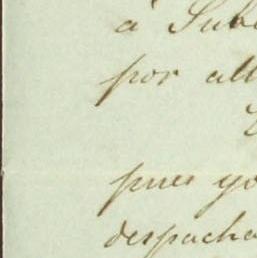 á Sub
por all
pues yo
despacha